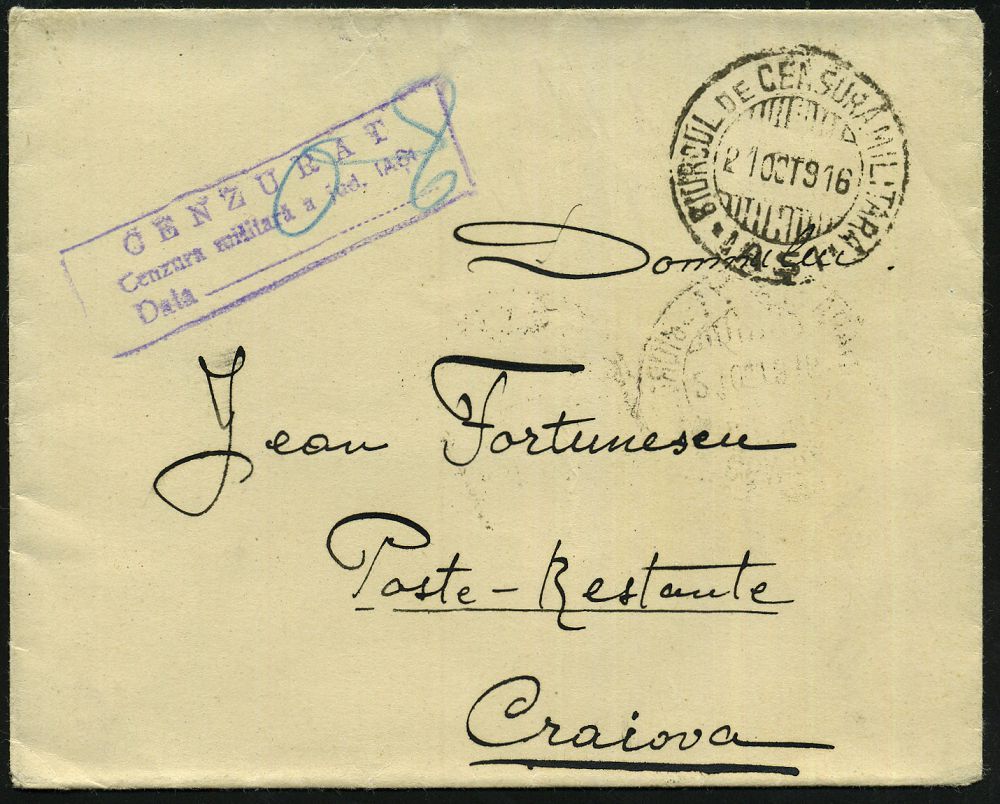 CENZURAT
Cenzura militară a jud. IAȘI
Data
BIUROUL DE CENSURA MILITARA
21 OCT 916
* IAȘI *
Domnului
OCT 916
Jean Fortunescu
Poste-Restante
Craiova